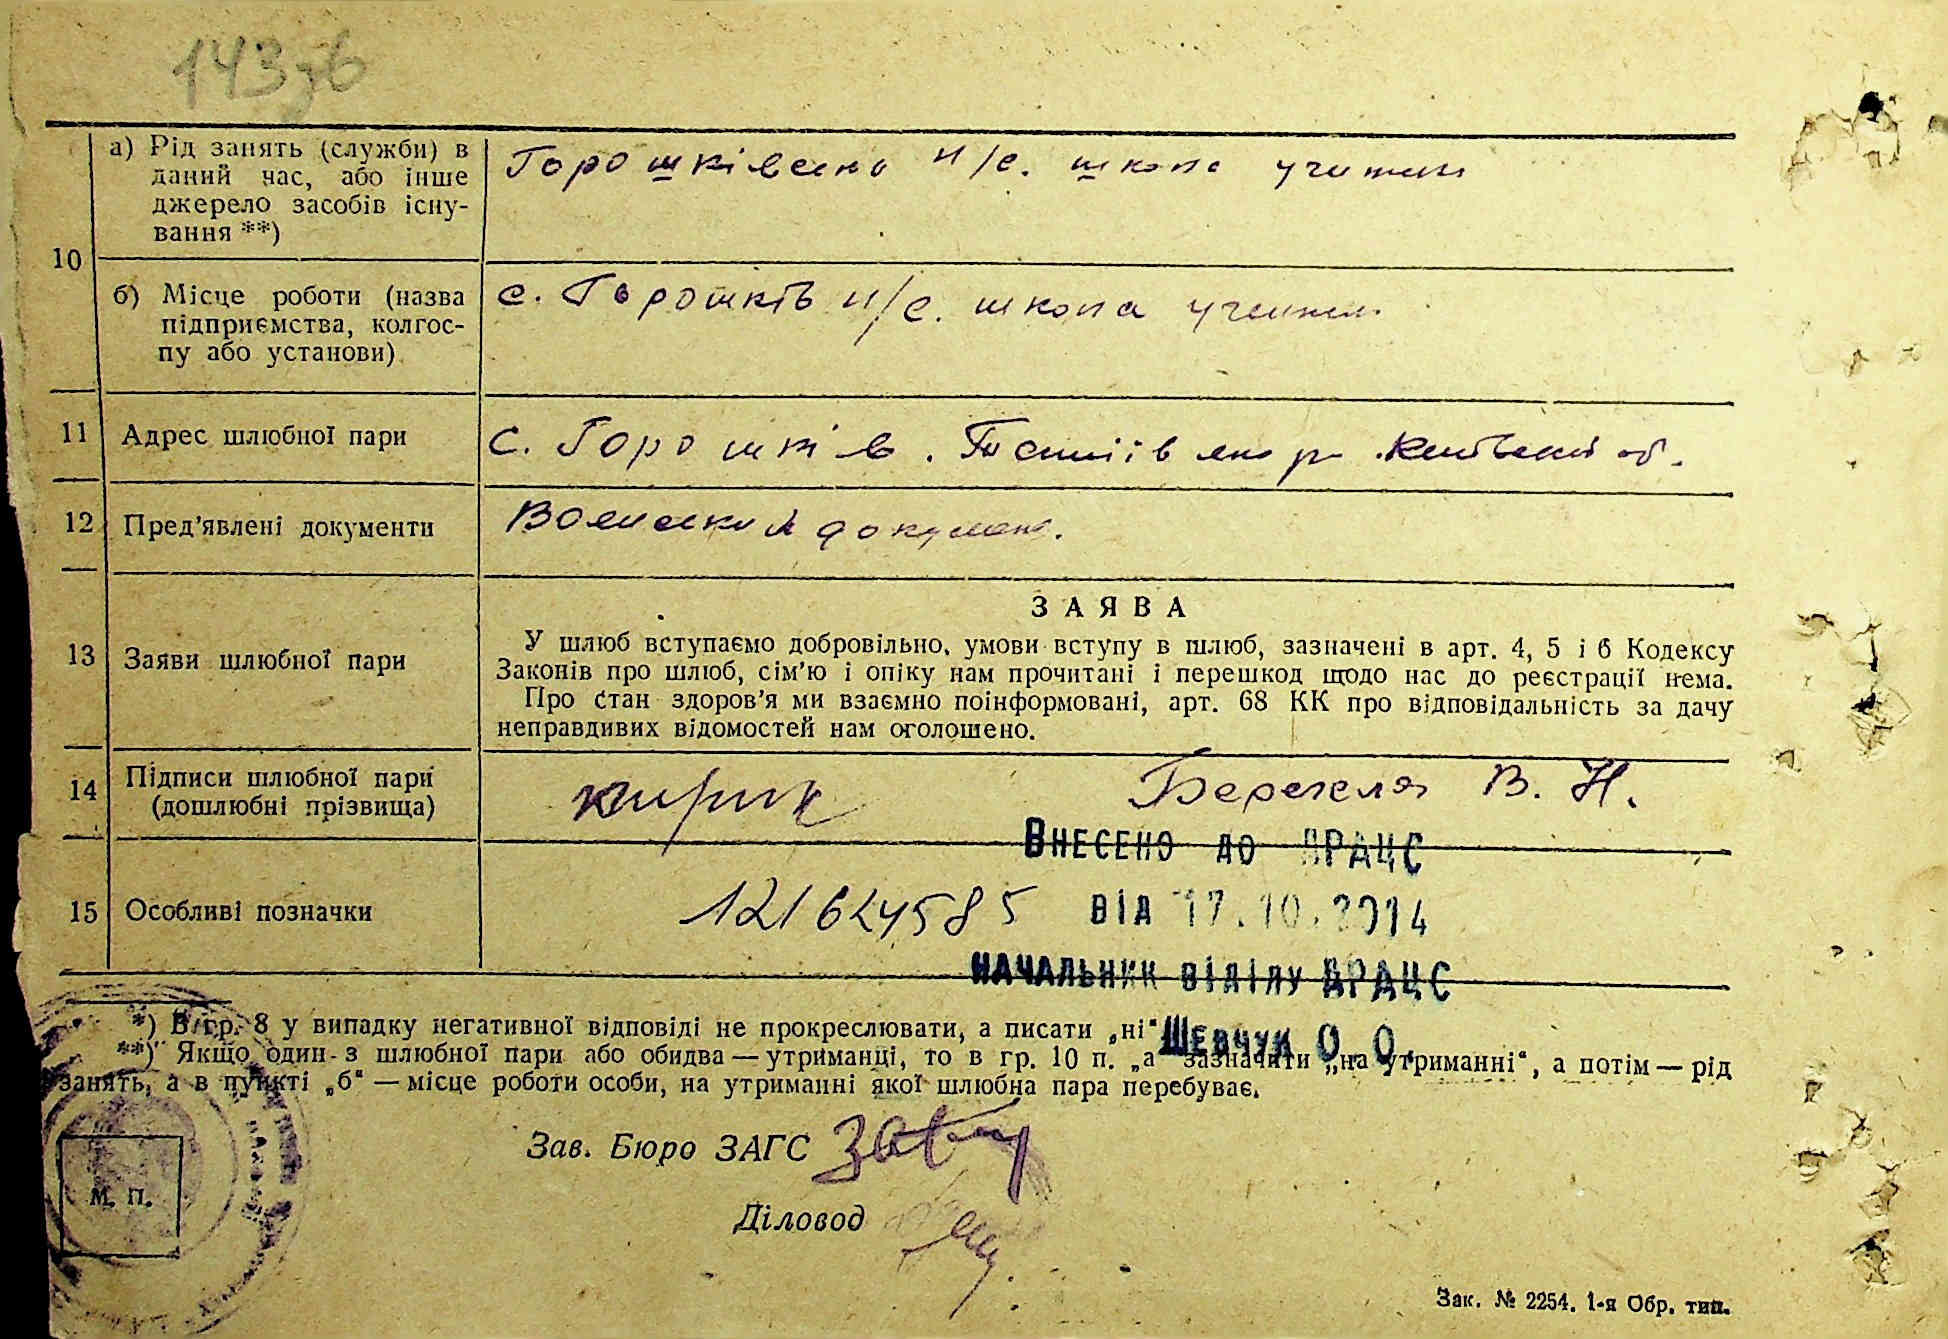 143зв
а) Рід занять (служби) в
даний час, або інше
джерело засобів існу-
вання **)
Горошківська н/с. школа учитель
10
б) Місце роботи (назва
підприємства, колгос-
пу або установи)
с. Горошків н/с. школа учитель
11 Адрес шлюбної пари
с. Горошків. Тетіївський р Київської об.
12 Пред’явлені документи
Воинский документ.
ЗАЯВА
13 Заяви шлюбної пари
У шлюб вступаємо добровільно, умови вступу в шлюб, зазначені в арт. 4, 5 і 6 Кодексу
Законів про шлюб, сім’ю і опіку нам прочитані і перешкод щодо нас до реєстрації нема.
Про стан здоров’я ми взаємно поінформовані, арт. 68 КК про відповідальність за дачу
неправдивих відомостей нам оголошено.
14 Підписи шлюбної пари
(дошлюбні прізвища)
Кирик Берегеля В. Н.
ВНЕСЕНО ДО ДРАЦС
15 Особливі позначки
121624585 ВІД 17.10.2014
НАЧАЛЬНИК ВІДІЛУ ДРАЦС
ШЕВЧУК О.О.
*) В гр. 8 у випадку негативної відповіді не прокреслювати, а писати „ні“
**) Якщо один з шлюбної пари або обидва — утриманці, то в гр. 10 п. „а“ зазначити „на утриманні“, а потім — рід
занять, а в пункті „б“ — місце роботи особи, на утриманні якої шлюбна пара перебуває.
Зав. Бюро ЗАГС
М. П.
Діловод
Зак. № 2254. 1-я Обр. тип.